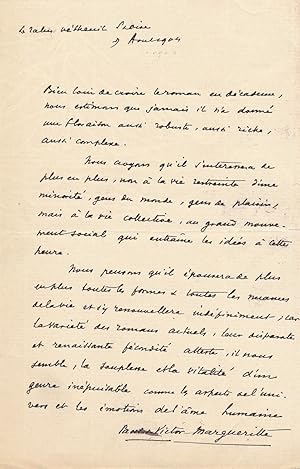 Vétheuil S. et Oise
9 Août 1904
Bien loin de croire le roman en décadence,
nous estimons que jamais il n'a donné
une floraison aussi robuste, aussi riche,
aussi complexe.
Nous croyons qu'il s'intéressera de
plus en plus, non à la vie restreinte d'une
minorité, gens du monde, gens de plaisir,
mais à la vie collective, au grand mouve-
ment social qui entraîne les idées à cette
heure.
Nous pensons qu'il épousera de plus
en plus toutes les formes & toutes les nuances
de la vie et s'y renouvellera indéfiniment, car
la variété des romans actuels, leur disparate
et renaissante fécondité atteste, il nous
semble, la souplesse et la vitalité d'un
genre inépuisable comme les aspects de l'uni-
vers et les émotions de l'âme humaine
Victor Margueritte